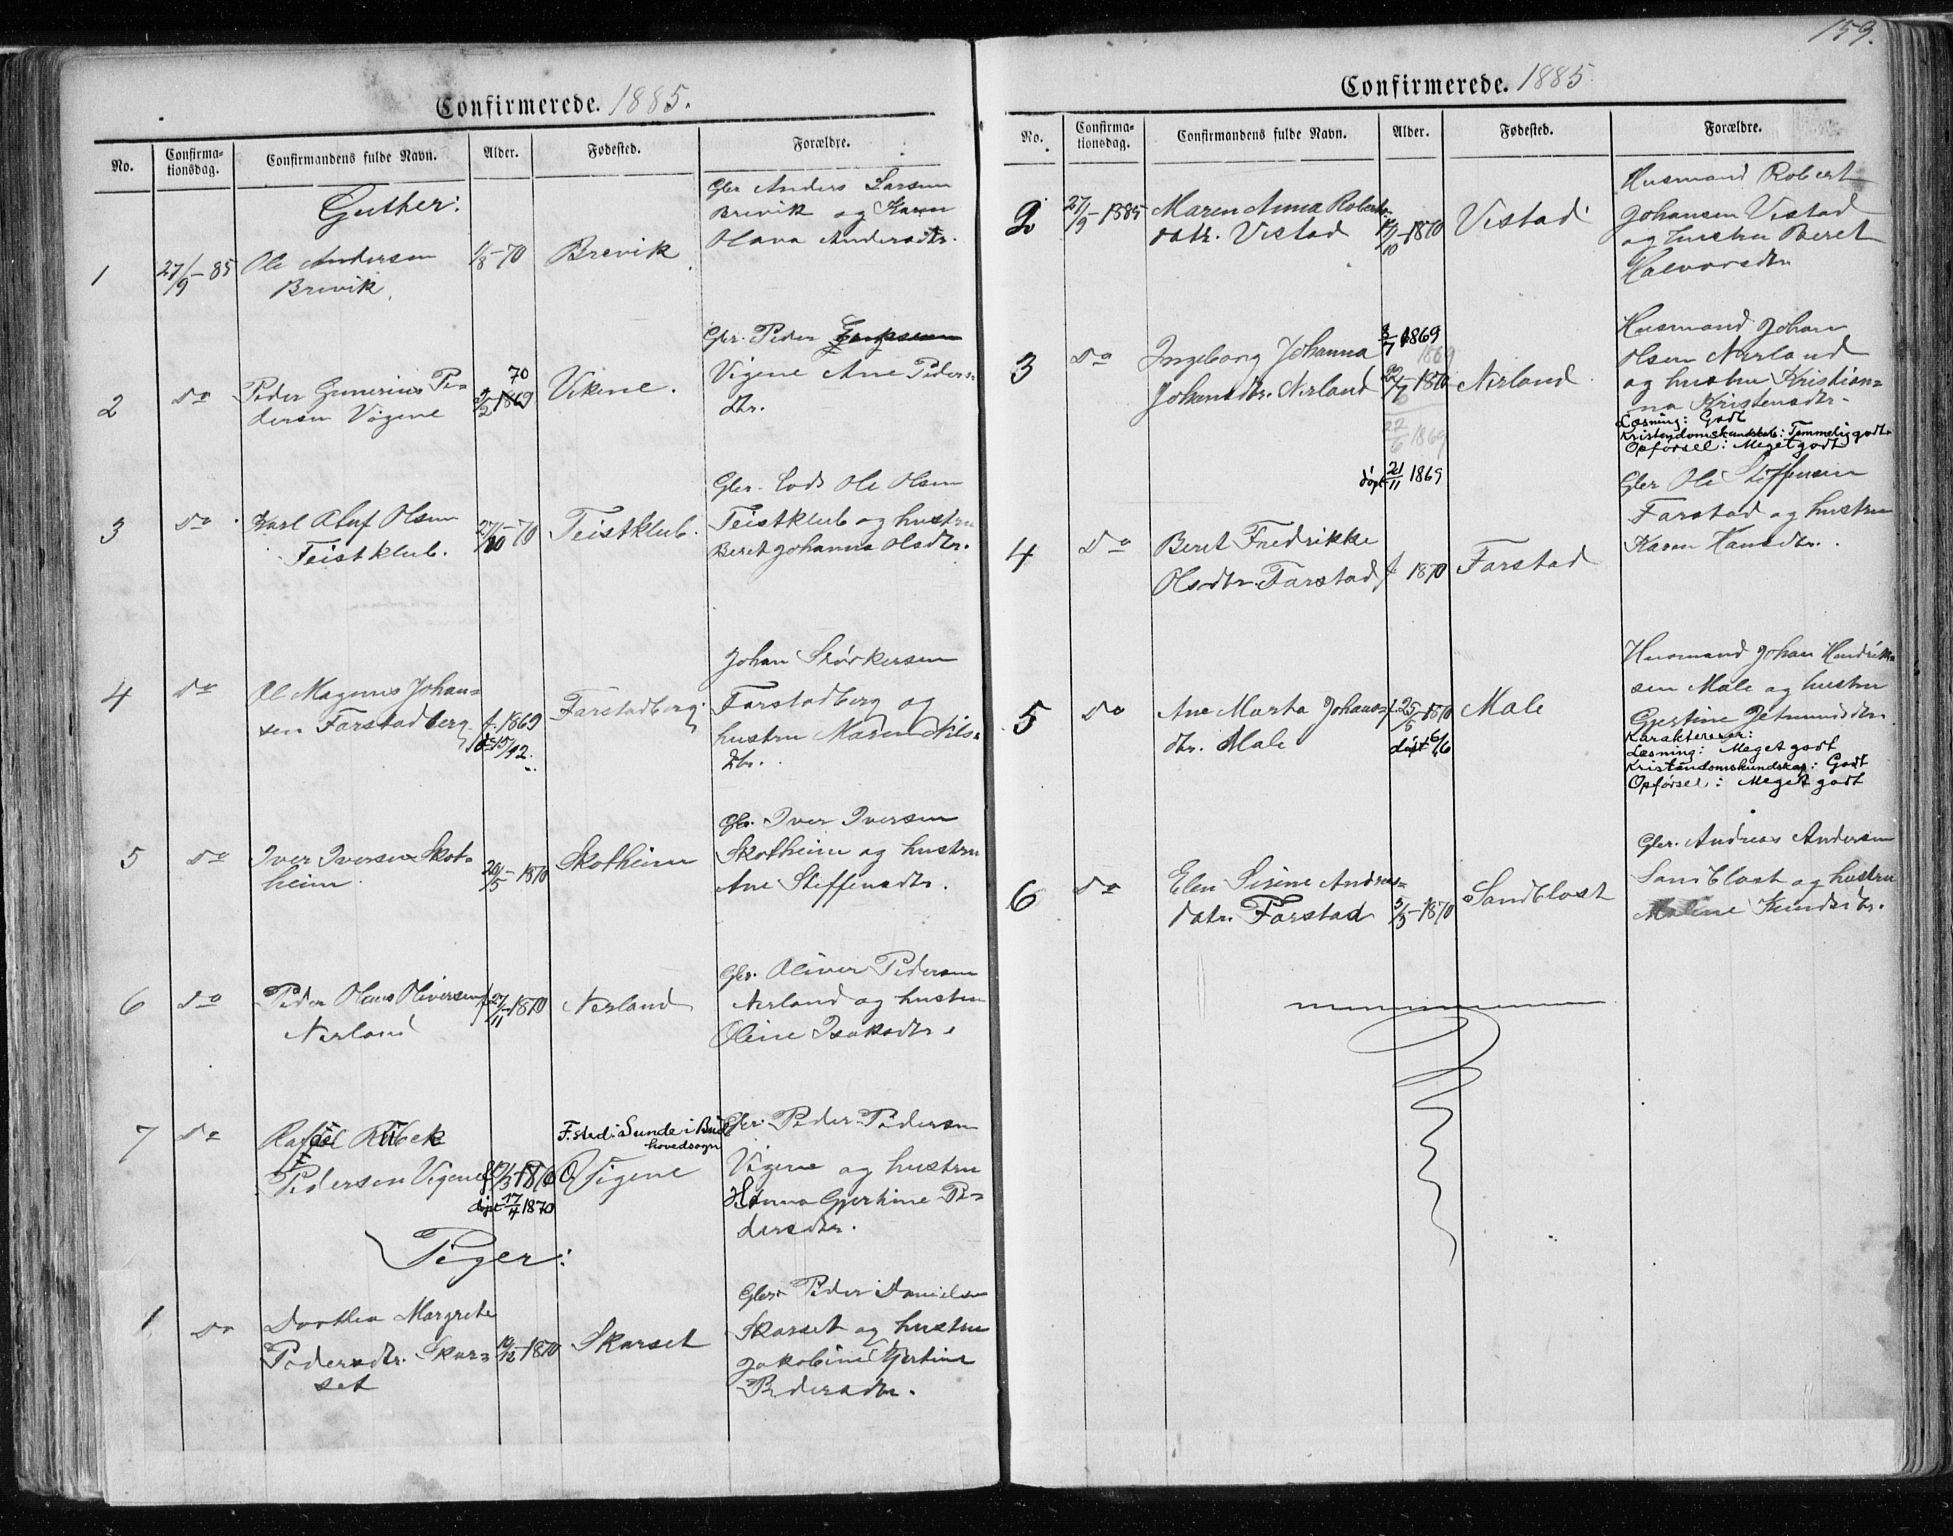 Confirmerede. 1885.
No. Confirma-
tionsdag. Confirmandens fulde Navn. Alder. Fødested. Forældre.
Gutter:
1 27/9-85 Ole Andersen
Brevik 1/8-70 Brevik
Gbr Anders Larsen
Brevik og Karen
Olava Andersdtr.
2 do Peder Gunerius Pe-
dersen Vigene 70
9/2 1869 Vikene.
Gbr. Peder
Vigene Ane Peders-
dtr.
3 do Karl Oluf Olsen
Teistklub. 27/10-70 Teistklub.
Gbr. Lods Ole Olsen
Teistklub og hustru
Beret Johanna Olsdtr.
4 do Ole Magnus Johan-
sen Farstadberg f. 1869
do 15/12. Farstadberg
Johan Størkersen
Farstadberg og
hustru Maren Nils-
dtr.
5 do Iver Iversen Skot-
heim 20/5-1870 Skotheim
Gbr. Iver Iversen
Skotheim og hustru
Ane Steffensdtr.
6 do Peder Olaus Oliversen
Nerland f 27/11-1870 Nerland
Gbr. Oliver Pedersen
Nerland og hustru
Oline Isaksdtr.
7 do Rafael Ribek
Pedersen Vigene 1870
døpt 17/4 1870
F.sted: Sunde i Bud
hovedsogn
Vigene
Gbr. Peder Pedersen
Vigene og hustru
Hanna Gjertine Pe-
dersdtr.
Piger:
1 do Dorthea Margrete
Pedersdtr. Skar-
set 10/12-1870 Skarset
Gbr Peder Danielsen
Skarset og hustru
Jakobine Gjertine
Pedersdtr.
159.
Confirmerede. 1885
No. Confirma-
tionsdag. Confirmandens fulde Navn. Alder. Fødested. Forældre.
2 27/9-1885 Maren Anna Roberts-
datr. Vistad /10-1870 Vistad
Husmand Robert
Johansen Vistad
og hustru Beret
Halvorsdtr
3 do Ingeborg Johanna
Johansdtr. Nerland 1869
1869
1870
22/6 1869
døpt 21/11 1869
Nerland
Husmand Johan
Olsen Nerland
og hustru Kristian-
na Kristensdtr.
Læsning: Godt
Kristendomskundskab: Temmelig godt
Opførsel: Meget godt
4 do Beret Fredrikke
Olsdtr Farstad f 1870 Farstad
Gbr Ole Steffensen
Farstad og hustru
Karen Hansdtr.
5 do Ane Marta Johans-
dtr. Male f. 25/5 1870
døpt 6/6 Male
Husmand Johan Hendrik-
sen Male og hustru
Gjertine Jetmundsdtr.
Karakterer:
Læsning: Meget godt
Kristendomskundskap: Godt
Opførsel: Meget godt
6 do Elen Sirine Andreas-
datr. Farstad 5/5-1870 Sandblost
Gbr. Andreas Andersen
Sandblost og hustru
Malene Knudsdtr.